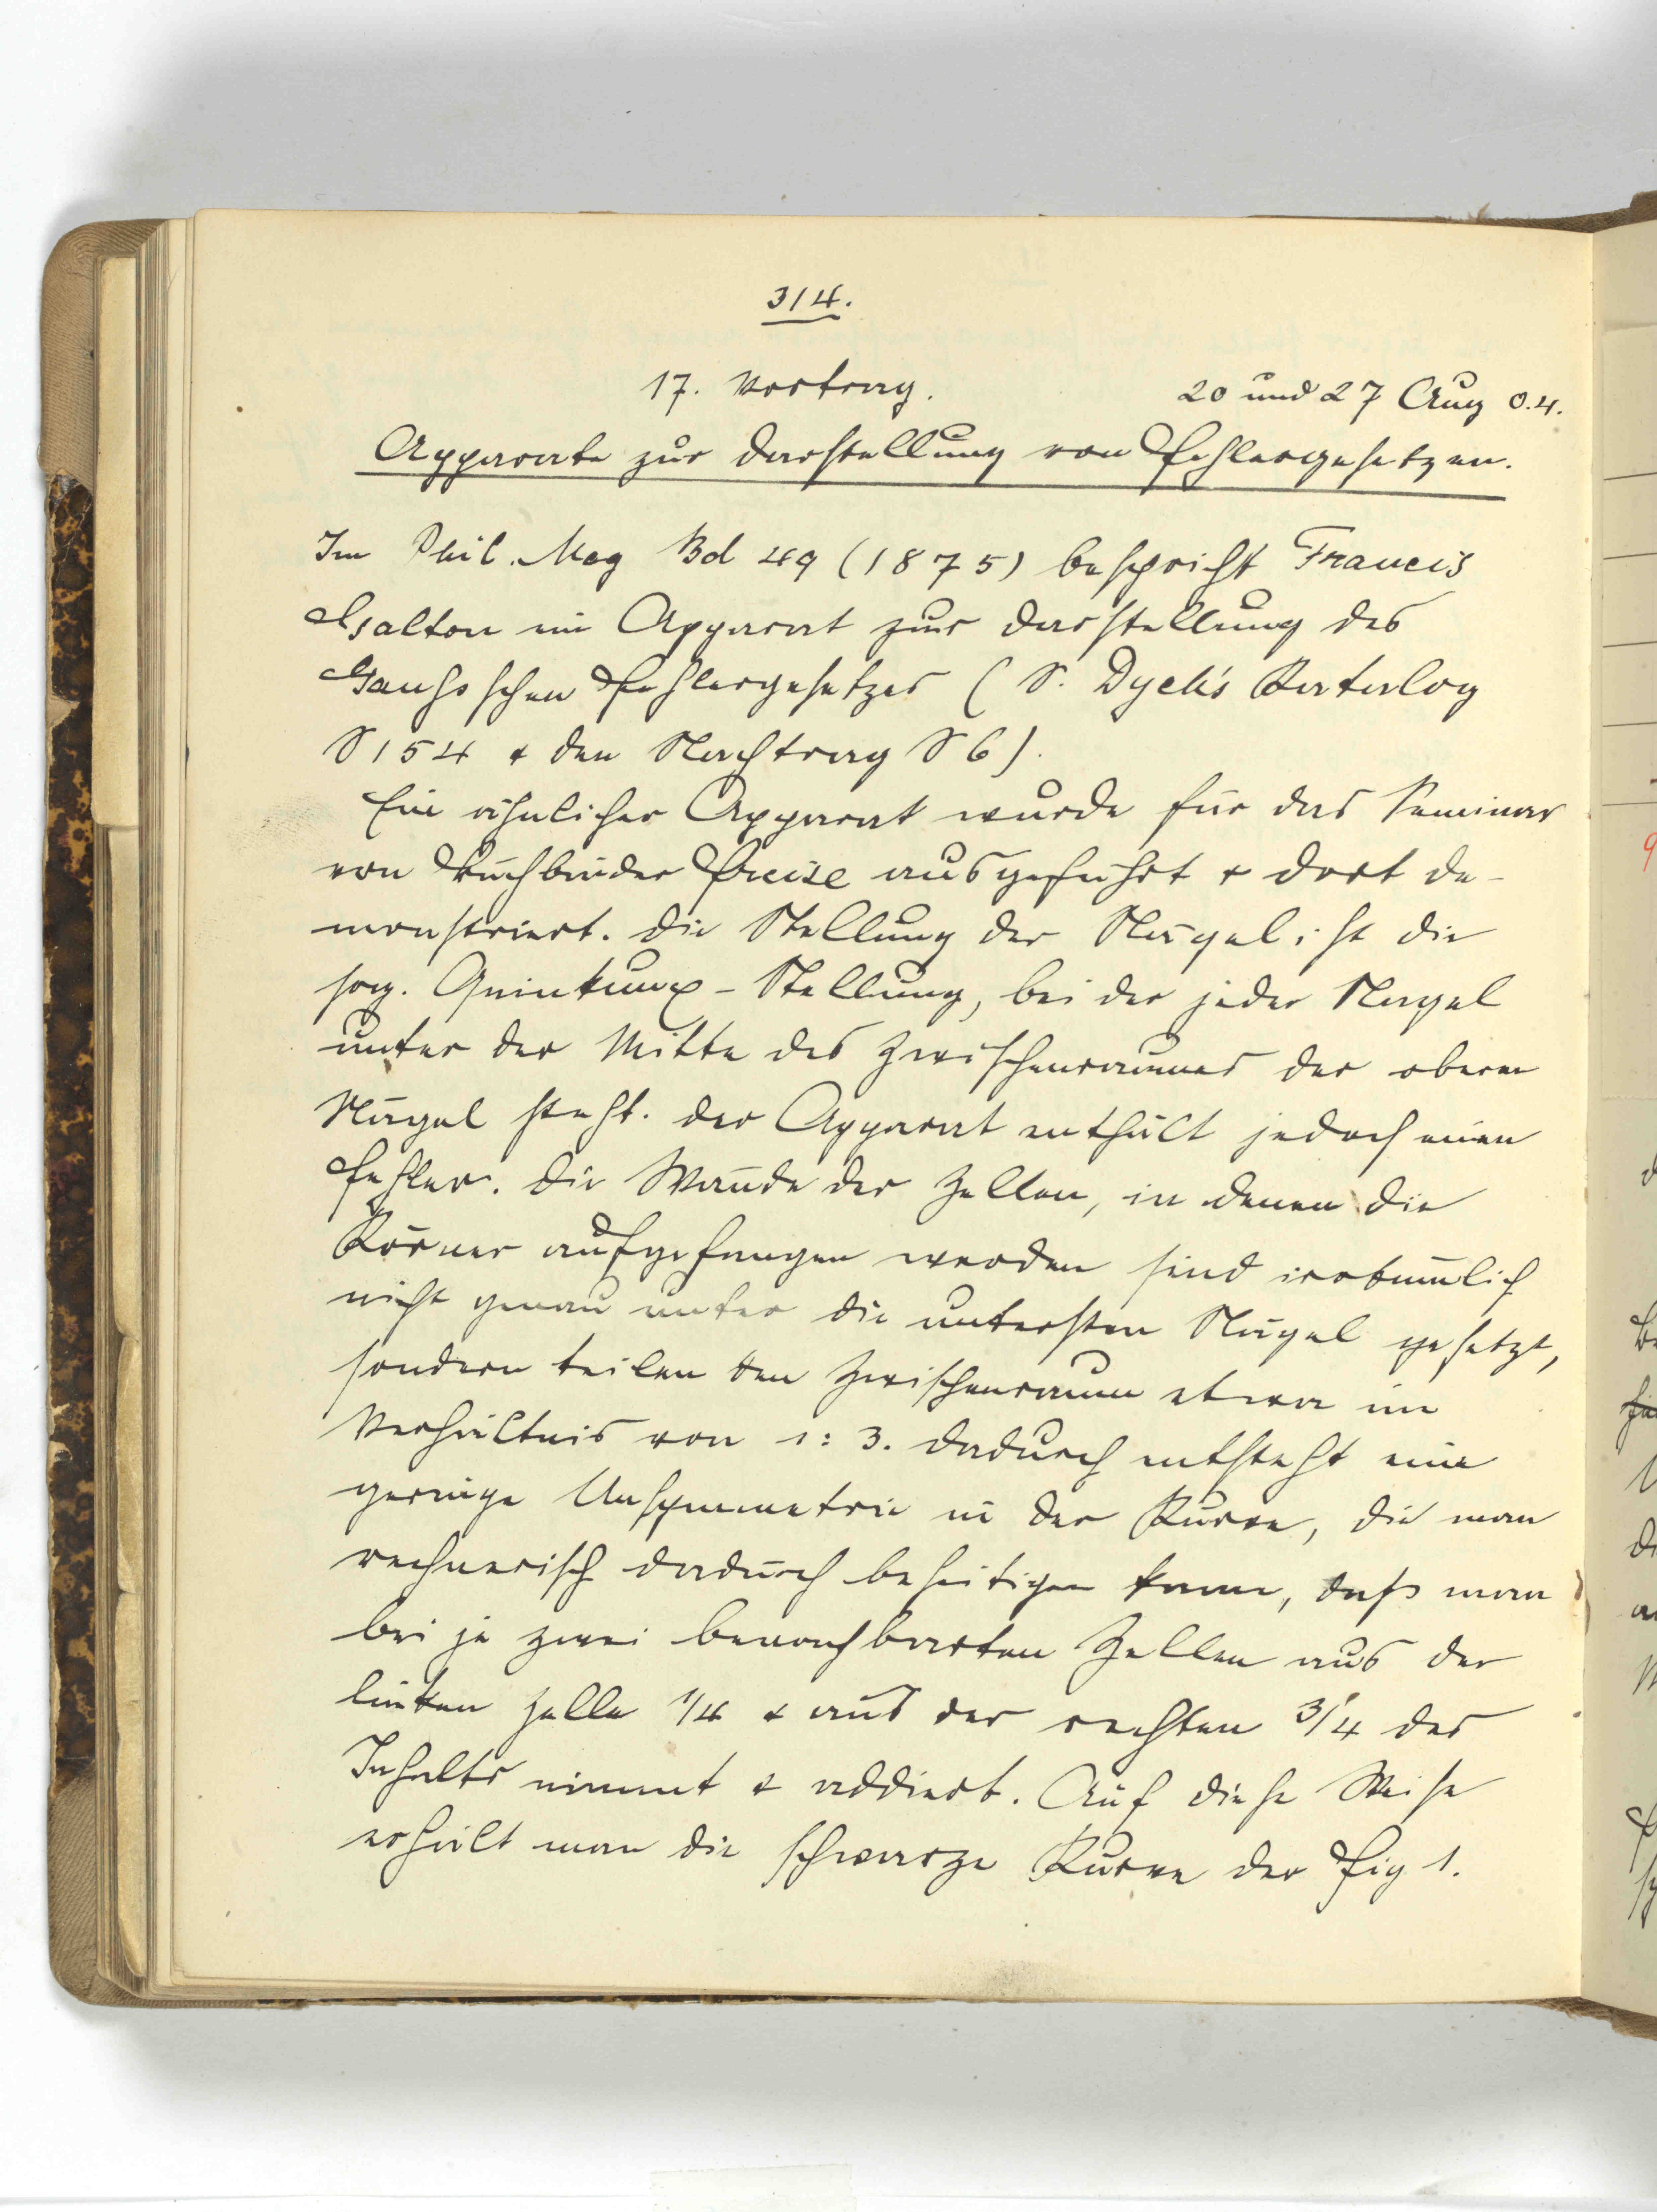 314.
17. Vortrag. 20 und 27 Aug 04.
Apparate zur Darstellung von Fehlergesetzen.
Im Phil. Mag Bd 49 (1875) bespricht Francis
Galton ein Apparat zur Darstellung des
Gaußsschen Fehlergesetzes (S. Dyck's Katalog
S 154 & den Nachtrag S 6).
Ein ähnlicher Apparat wurde für das Seminar
von Buchbinder ausgeführt & dort de-
monstriert. Die Stellung der Nägel ist die
sog. Quinkunx-Stellung, bei der jeder Nagel
unter der Mitte des Zwischenraumes der oberen
Nägel steht. Der Apparat enthält jedoch einen
Fehler. Die Wände der Zellen, in denen die
Körner aufgefangen werden sind irrtümlich
nicht genau unter die untersten Nägel gesetzt,
sondern teilen den Zwischenraum etwa im
Verhältnis von 1:3. Dadurch entsteht eine
geringe Unsymmetrie in der Kurve, die man
rechnerisch dadurch beseitigen kann, daß man
bei je zwei benachbarten Zellen aus der
linken Zelle 1/4 & aus der rechten 3/4 des
Inhalts nimmt & addiert. Auf diese Weise
erhält man die schwarze Kurve der Fig 1.